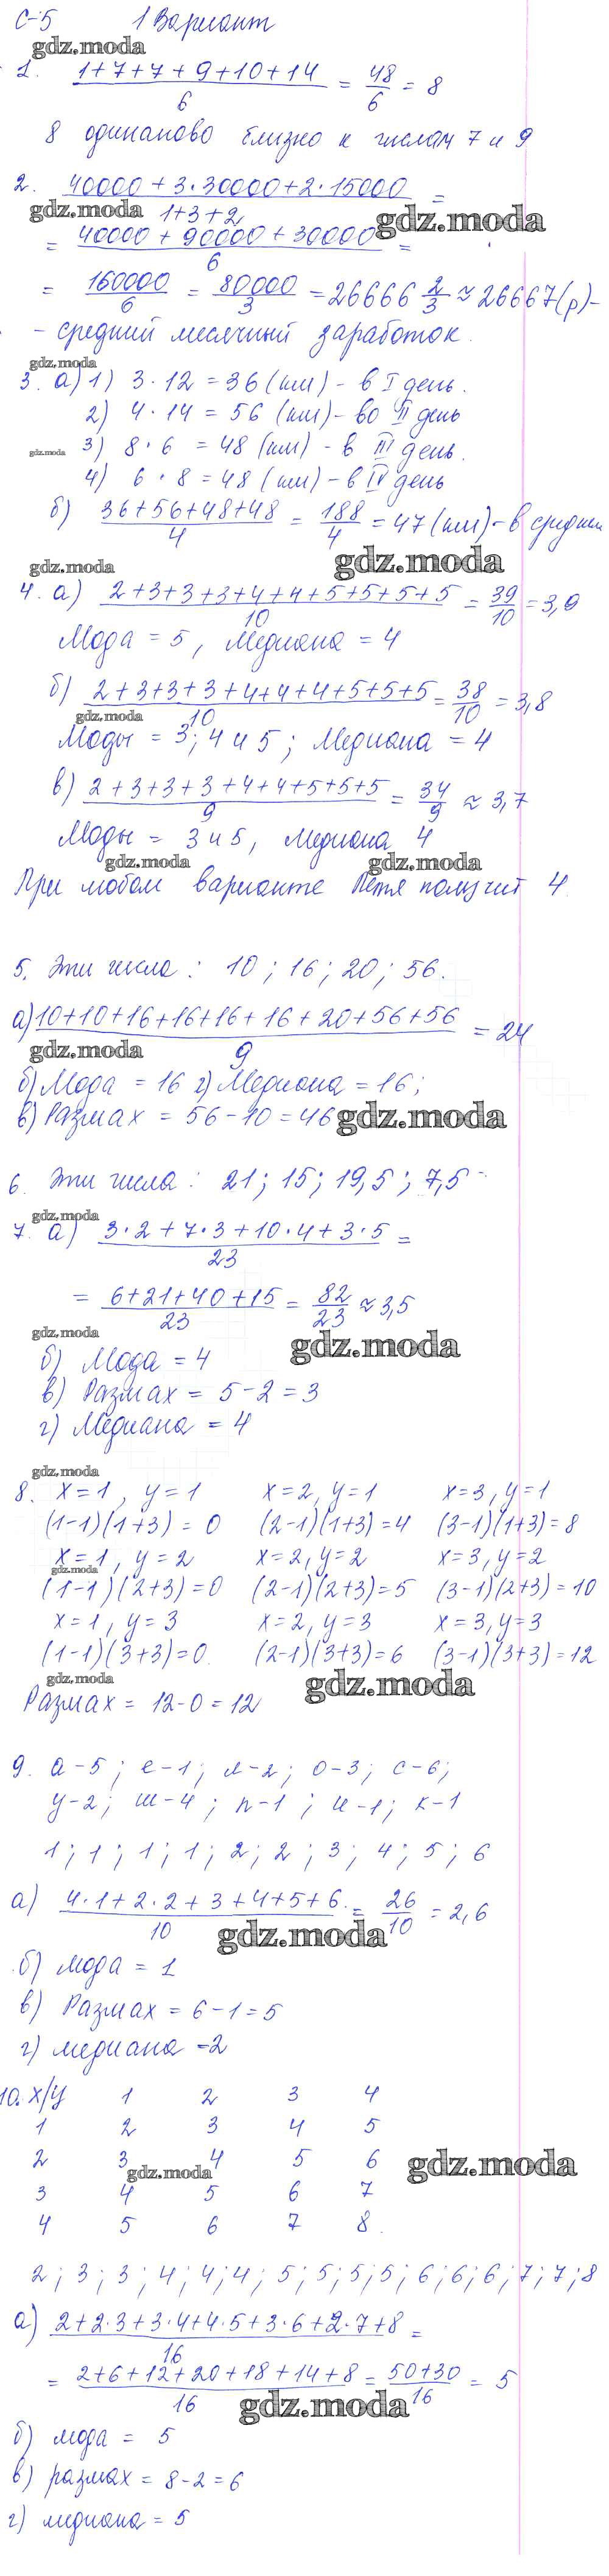 С-5 1 Вариант
gdz.moda
1. (1+7+7+9+10+14)/6 = 48/6 = 8
8 одинаково близко к числам 7 и 9
2. (40000 + 3·30000 + 2·15000)/(1+3+2) =
gdz.moda gdz.moda
= (40000 + 90000 + 30000)/6 =
= 160000/6 = 80000/3 = 26666 2/3 ≈ 26667(р)-
- средний месячный заработок.
gdz.moda
3. а) 1) 3·12 = 36 (км) - в I день.
2) 4·14 = 56 (км) - во II день
gdz.moda
3) 8·6 = 48 (км) - в III день.
4) 6·8 = 48 (км) - в IV день
б) (36+56+48+48)/4 = 188/4 = 47 (км) - в среднем
gdz.moda gdz.moda
4. а) (2+3+3+3+4+4+5+5+5+5)/10 = 39/10 = 3,9
Мода = 5, Медиана = 4
б) (2+3+3+3+4+4+4+5+5+5)/10 = 38/10 = 3,8
gdz.moda
Моды = 3; 4 и 5; Медиана = 4
в) (2+3+3+3+4+4+5+5+5)/9 = 34/9 ≈ 3,7
Моды = 3 и 5, Медиана 4
gdz.moda gdz.moda
При любом варианте Петя получит 4.
5. Эти числа: 10; 16; 20; 56.
а) (10+10+16+16+16+16+20+56+56)/9 = 24
gdz.moda
б) Мода = 16 г) Медиана = 16;
в) Размах = 56-10 = 46
gdz.moda
6. Эти числа: 21; 15; 19,5; 7,5
gdz.moda
7. а) (3·2+7·3+10·4+3·5)/23 =
= (6+21+40+15)/23 = 82/23 ≈ 3,5
gdz.moda gdz.moda
б) Мода = 4
в) Размах = 5-2 = 3
г) Медиана = 4
gdz.moda
8. x=1, y=1 x=2, y=1 x=3, y=1
(1-1)(1+3) = 0 (2-1)(1+3)=4 (3-1)(1+3)=8
x=1, y=2 x=2, y=2 x=3, y=2
gdz.moda
(1-1)(2+3)=0 (2-1)(2+3)=5 (3-1)(2+3)=10
x=1, y=3 x=2, y=3 x=3, y=3
(1-1)(3+3)=0. (2-1)(3+3)=6 (3-1)(3+3)=12
gdz.moda gdz.moda
Размах = 12-0 = 12
9. а-5; е-1; л-2; о-3; с-6;
у-2; ш-4; п-1; и-1; к-1
1; 1; 1; 1; 2; 2; 3; 4; 5; 6
а) (4·1+2·2+3+4+5+6)/10 = 26/10 = 2,6
gdz.moda
б) мода = 1
в) Размах = 6-1=5
г) медиана -2
10. x/y 1 2 3 4
1 2 3 4 5
2 3 4 5 6
gdz.moda gdz.moda
3 4 5 6 7
4 5 6 7 8.
2; 3; 3; 4; 4; 4; 5; 5; 5; 5; 6; 6; 6; 7; 7; 8
а) (2+2·3+3·4+4·5+3·6+2·7+8)/16 =
= (2+6+12+20+18+14+8)/16 = (50+30)/16 = 5
gdz.moda
б) мода = 5
в) размах = 8-2=6
г) медиана = 5